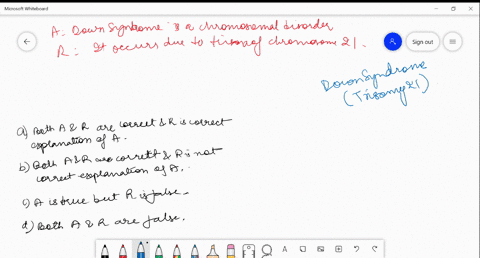 Microsoft Whiteboard
Sign out
A: Down Syndrome is a chromosomal disorder
R: It occurs due to trisomy of chromosome 21.
Down Syndrome
(Trisomy 21)
a) Both A & R are correct & R is correct
explanation of A.
b) Both A & R are correct & R is not
correct explanation of A.
c) A is true but R is false.
d) Both A & R are false.